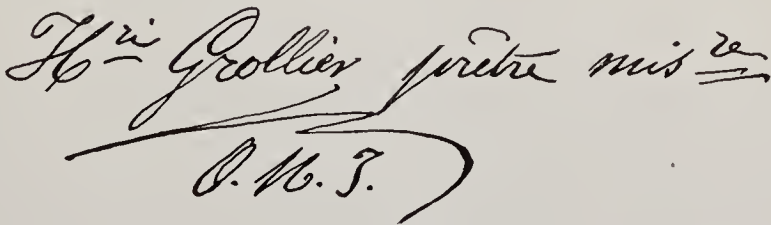 Hri Grollier prêtre misre
O. M. J.